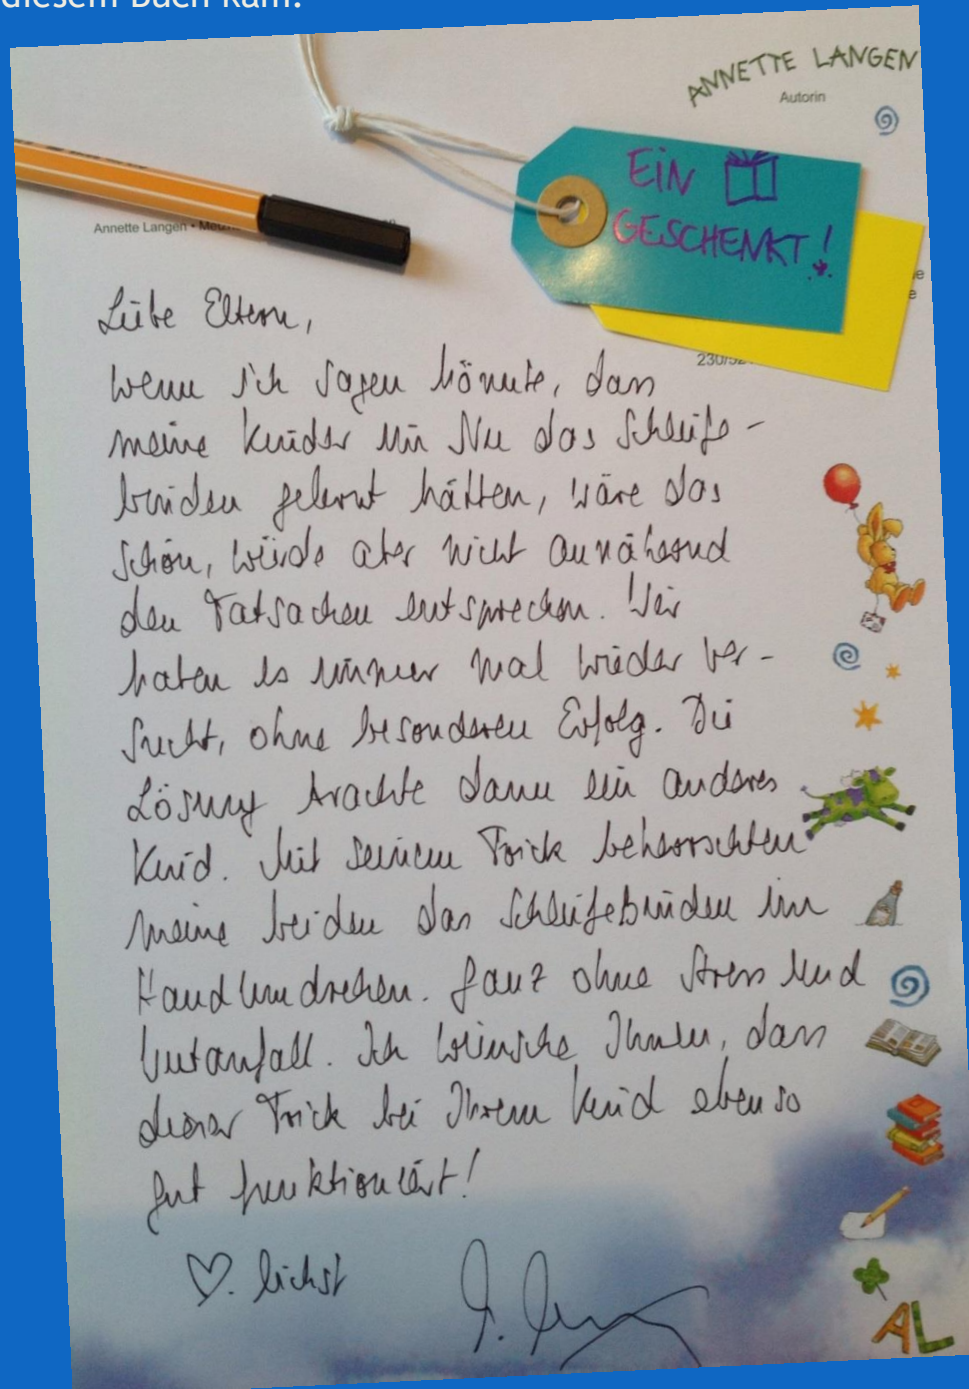 diesem Buch kam:
ANNETTE LANGEN
Autorin
EIN
GESCHENKT!
Annette Langen •
Liebe Eltern,
wenn ich sagen könnte, dass
meine Kinder im Nu das Schleife-
binden gelernt hätten, wäre das
schön, würde aber nicht annähernd
den Tatsachen entsprechen. Wir
haben es immer mal wieder ver-
sucht, ohne besonderen Erfolg. Die
Lösung brachte dann ein anderes
Kind. Mit seinem Trick beherrschten
meine beiden das Schleifebinden im
Handumdrehen. Ganz ohne Stress und
Wutanfall. Ich wünsche Ihnen, dass
dieser Trick bei Ihrem Kind ebenso
gut funktioniert!
♡. lichst
AL